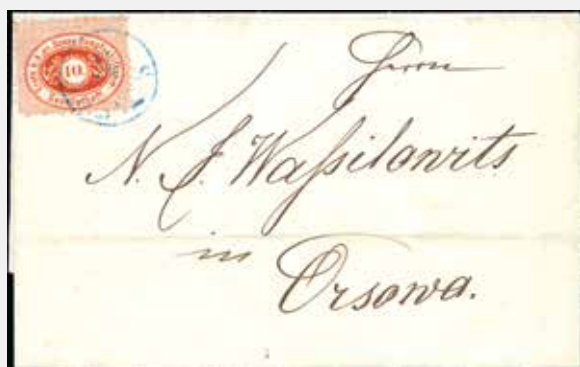 10
Herrn
N. J. Waßilowits
in
Orsowa.